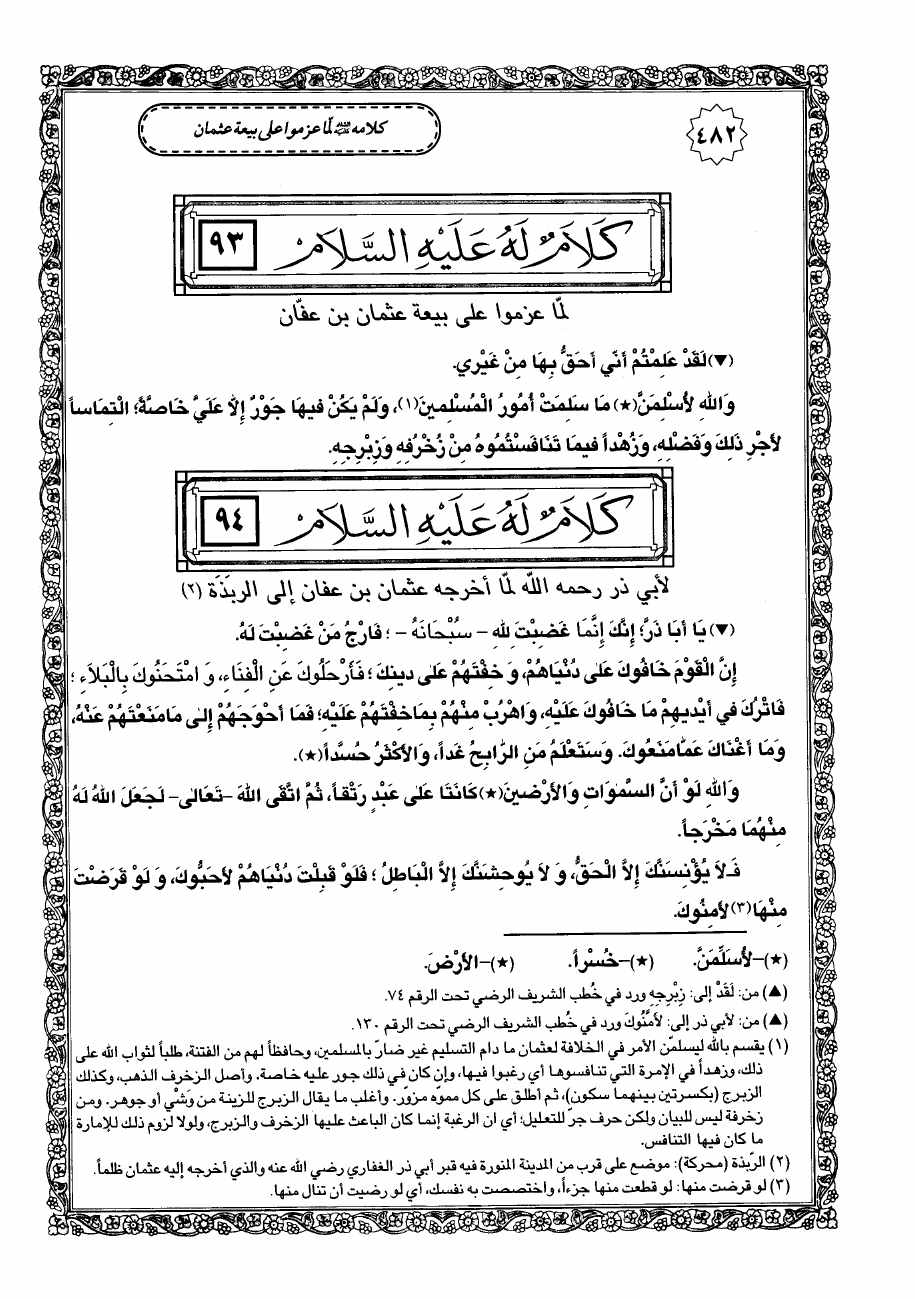 ٤٨٢
كلامه عليه السلام لمّا عزموا على بيعة عثمان
كَلَامٌ لَهُ عَلَيْهِ السَّلَام ٩٣
لمّا عزموا على بيعة عثمان بن عفّان
(▼) لَقَدْ عَلِمْتُمْ أَنّي أَحَقُّ بِهَا مِنْ غَيْرِي.
وَاللهِ لأُسْلِمَنَّ(★) مَا سَلِمَتْ أُمُورُ الْمُسْلِمينَ(١)، وَلَمْ يَكُنْ فيهَا جَوْرٌ إِلاَّ عَلَيَّ خَاصَّةً؛ الْتِمَاساً
لأَجْرِ ذَلِكَ وَفَضْلِهِ، وَزُهْداً فيمَا تَنَافَسْتُمُوهُ مِنْ زُخْرُفِهِ وَزِبْرِجِهِ.
كَلَامٌ لَهُ عَلَيْهِ السَّلَام ٩٤
لأبي ذر رحمه اللّه لمّا أخرجه عثمان بن عفان إلى الربَذَة (٢)
(▼) يَا أَبَا ذَرٍّ؛ إِنَّكَ إِنَّمَا غَضِبْتَ لِلهِ – سُبْحَانَهُ – ؛ فَارْجُ مَنْ غَضِبْتَ لَهُ.
إِنَّ الْقَوْمَ خَافُوكَ عَلى دُنْيَاهُمْ، وَ خِفْتَهُمْ عَلى دينِكَ ؛ فَأَرْحَلُوكَ عَنِ الْفِنَاءِ، وَ امْتَحَنُوكَ بِالْبَلاَءِ ؛
فَاتْرُكْ في أَيْديهِمْ مَا خَافُوكَ عَلَيْهِ، وَاهْرُبْ مِنْهُمْ بِمَاخِفْتَهُمْ عَلَيْهِ؛ فَمَا أَحْوَجَهُمْ إِلى مَامَنَعْتَهُمْ عَنْهُ،
وَمَا أَغْنَاكَ عَمَّامَنَعُوكَ. وَسَتَعْلَمُ مَنِ الرَّابِحُ غَداً، وَالأَكْثَرُ حُسَّداً(★).
وَاللهِ لَوْ أَنَّ السَّموَاتِ وَالأَرْضينَ(★)كَانَتَا عَلى عَبْدٍ رَتْقاً، ثُمَّ اتَّقَى اللهَ –تَعَالى– لَجَعَلَ اللهُ لَهُ
مِنْهُمَا مَخْرَجاً.
فَلاَ يُؤْنِسَنَّكَ إِلاَّ الْحَقُّ، وَ لاَ يُوحِشَنَّكَ إِلاَّ الْبَاطِلُ ؛ فَلَوْ قَبِلْتَ دُنْيَاهُمْ لأَحَبُّوكَ، وَ لَوْ قَرَضْتَ
مِنْهَا(٣) لأَمِنُوكَ.
(★)–لأُسَلِّمَنَّ. (★)–خُسْراً. (★)–الأَرْضَ.
(▲) من: لَقَدْ إلى: زِبْرِجِهِ ورد في خُطب الشريف الرضي تحت الرقم ٧٤.
(▲) من: لأبي ذر إلى: لأَمِنُوكَ ورد في خُطب الشريف الرضي تحت الرقم ١٣٠.
(١) يقسم باللّه ليسلمّن الأمر في الخلافة لعثمان ما دام التسليم غير ضارّ بالمسلمين، وحافظاً لهم من الفتنة، طلباً لثواب اللّه على
ذلك، وزهداً في الإمرة التي تنافسوها أي رغبوا فيها، وإن كان في ذلك جور عليه خاصة. وأصل الزخرف الذهب، وكذلك
الزبرج (بكسرتين بينهما سكون)، ثم أطلق على كل مموّه مزوّر. وأغلب ما يقال الزبرج للزينة من وَشْي أو جوهر. ومن
زخرفة ليس للبيان ولكن حرف جرّ للتعليل؛ أي ان الرغبة إنما كان الباعث عليها الزخرف والزبرج، ولولا لزوم ذلك للإمارة
ما كان فيها التنافس.
(٢) الرّبذة (محركة): موضع على قرب من المدينة المنورة فيه قبر أبي ذر الغفاري رضي اللّه عنه والذي أخرجه إليه عثمان ظلماً.
(٣) لو قرضت منها: لو قطعت منها جزءاً، واختصصت به نفسك، أي لو رضيت أن تنال منها.